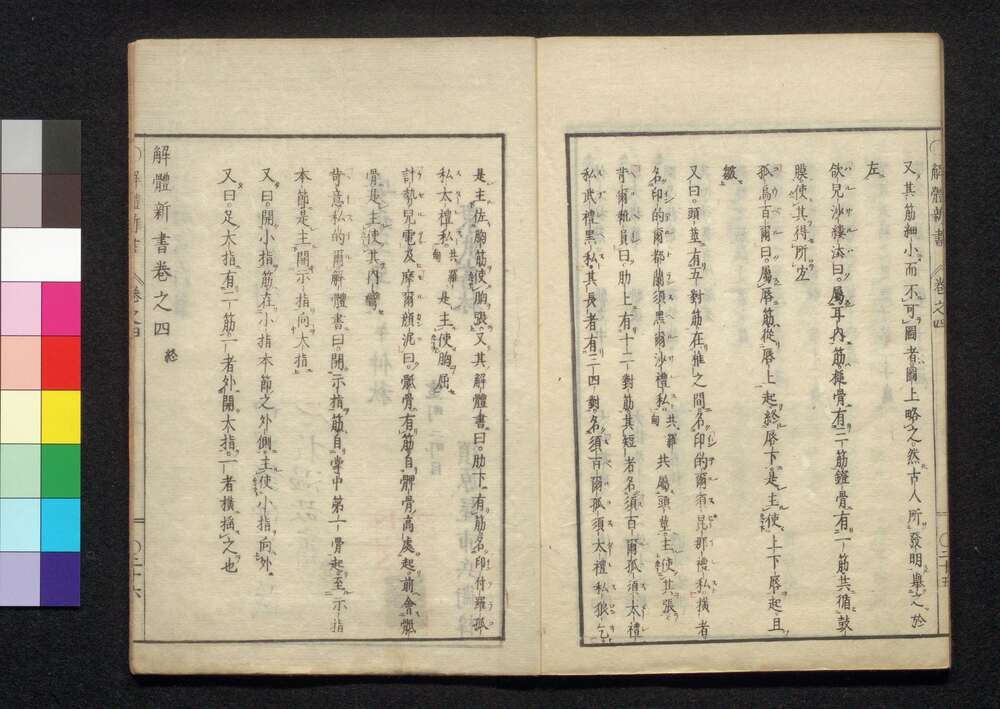 解體新書 卷之四 〇二十五
又其筋細小而不可圖者圖上略之然古人所發明舉之於
左
欲兒沙穆法曰屬耳內筋槌骨有二筋鐙骨有一筋共循鼓
膜使其得所定
孤烏百爾曰屬唇筋從唇上起終唇下是主使上下唇起且
皺
又曰頭莖有五對筋在椎之間名印的爾須昆那禮私橫者
名印的爾都蘭須黑爾沙禮私共羅甸共屬頭莖主使其張
背爾武員曰肋上有十二對筋其短者名須百爾孤須太禮
私武禮黑私其長者有三四對名須百爾孤須太禮私狼乞
是主佐胸筋使胸張又其解體書曰肋下有筋名印付羅孤
私太禮私共羅甸是主使胸屈
計勢兒電及摩爾顏泥曰骶骨有筋自髀骨高處起前會骶
骨是主使其內彎
昔意私的爾解體書曰開示指筋自掌中第一骨起至示指
本節是主開示指向大指
又曰開小指筋在小指本節之外側主使小指向外
又曰足大指有二筋一者外開大指一者橫摇之也
解體新書卷之四 終
解體新書 卷之四 〇二十六